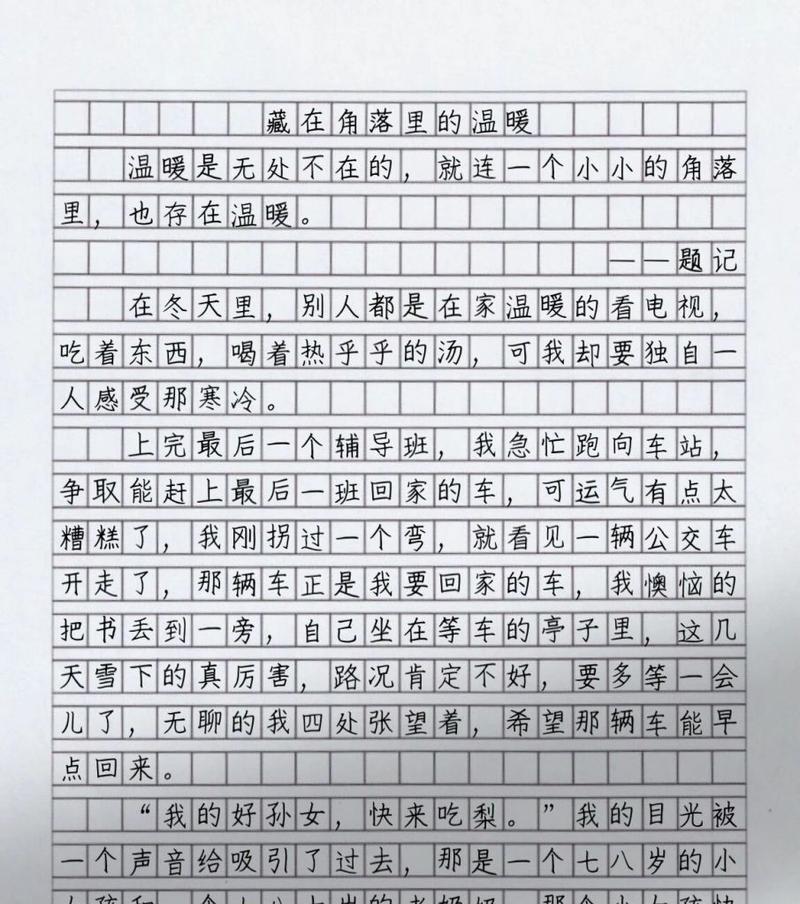 藏在角落里的温暖
温暖是无处不在的，就连一个小小的角落
里，也存在温暖。
——题记
在冬天里，别人都是在家温暖的看电视，
吃着东西，喝着热乎乎的汤，可我却要独自一
人感受那寒冷。
上完最后一个辅导班，我急忙跑向车站，
争取能赶上最后一班回家的车，可运气有点太
糟糕了，我刚拐过一个弯，就看见一辆公交车
开走了，那辆车正是我要回家的车，我懊恼的
把书丢到一旁，自己坐在等车的亭子里，这几
天雪下的真厉害，路况肯定不好，要多等一会
儿了，无聊的我四处张望着，希望那辆车能早
点回来。
“我的好孙女，快来吃梨。”我的目光被
一个声音给吸引了过去，那是一个七八岁的小